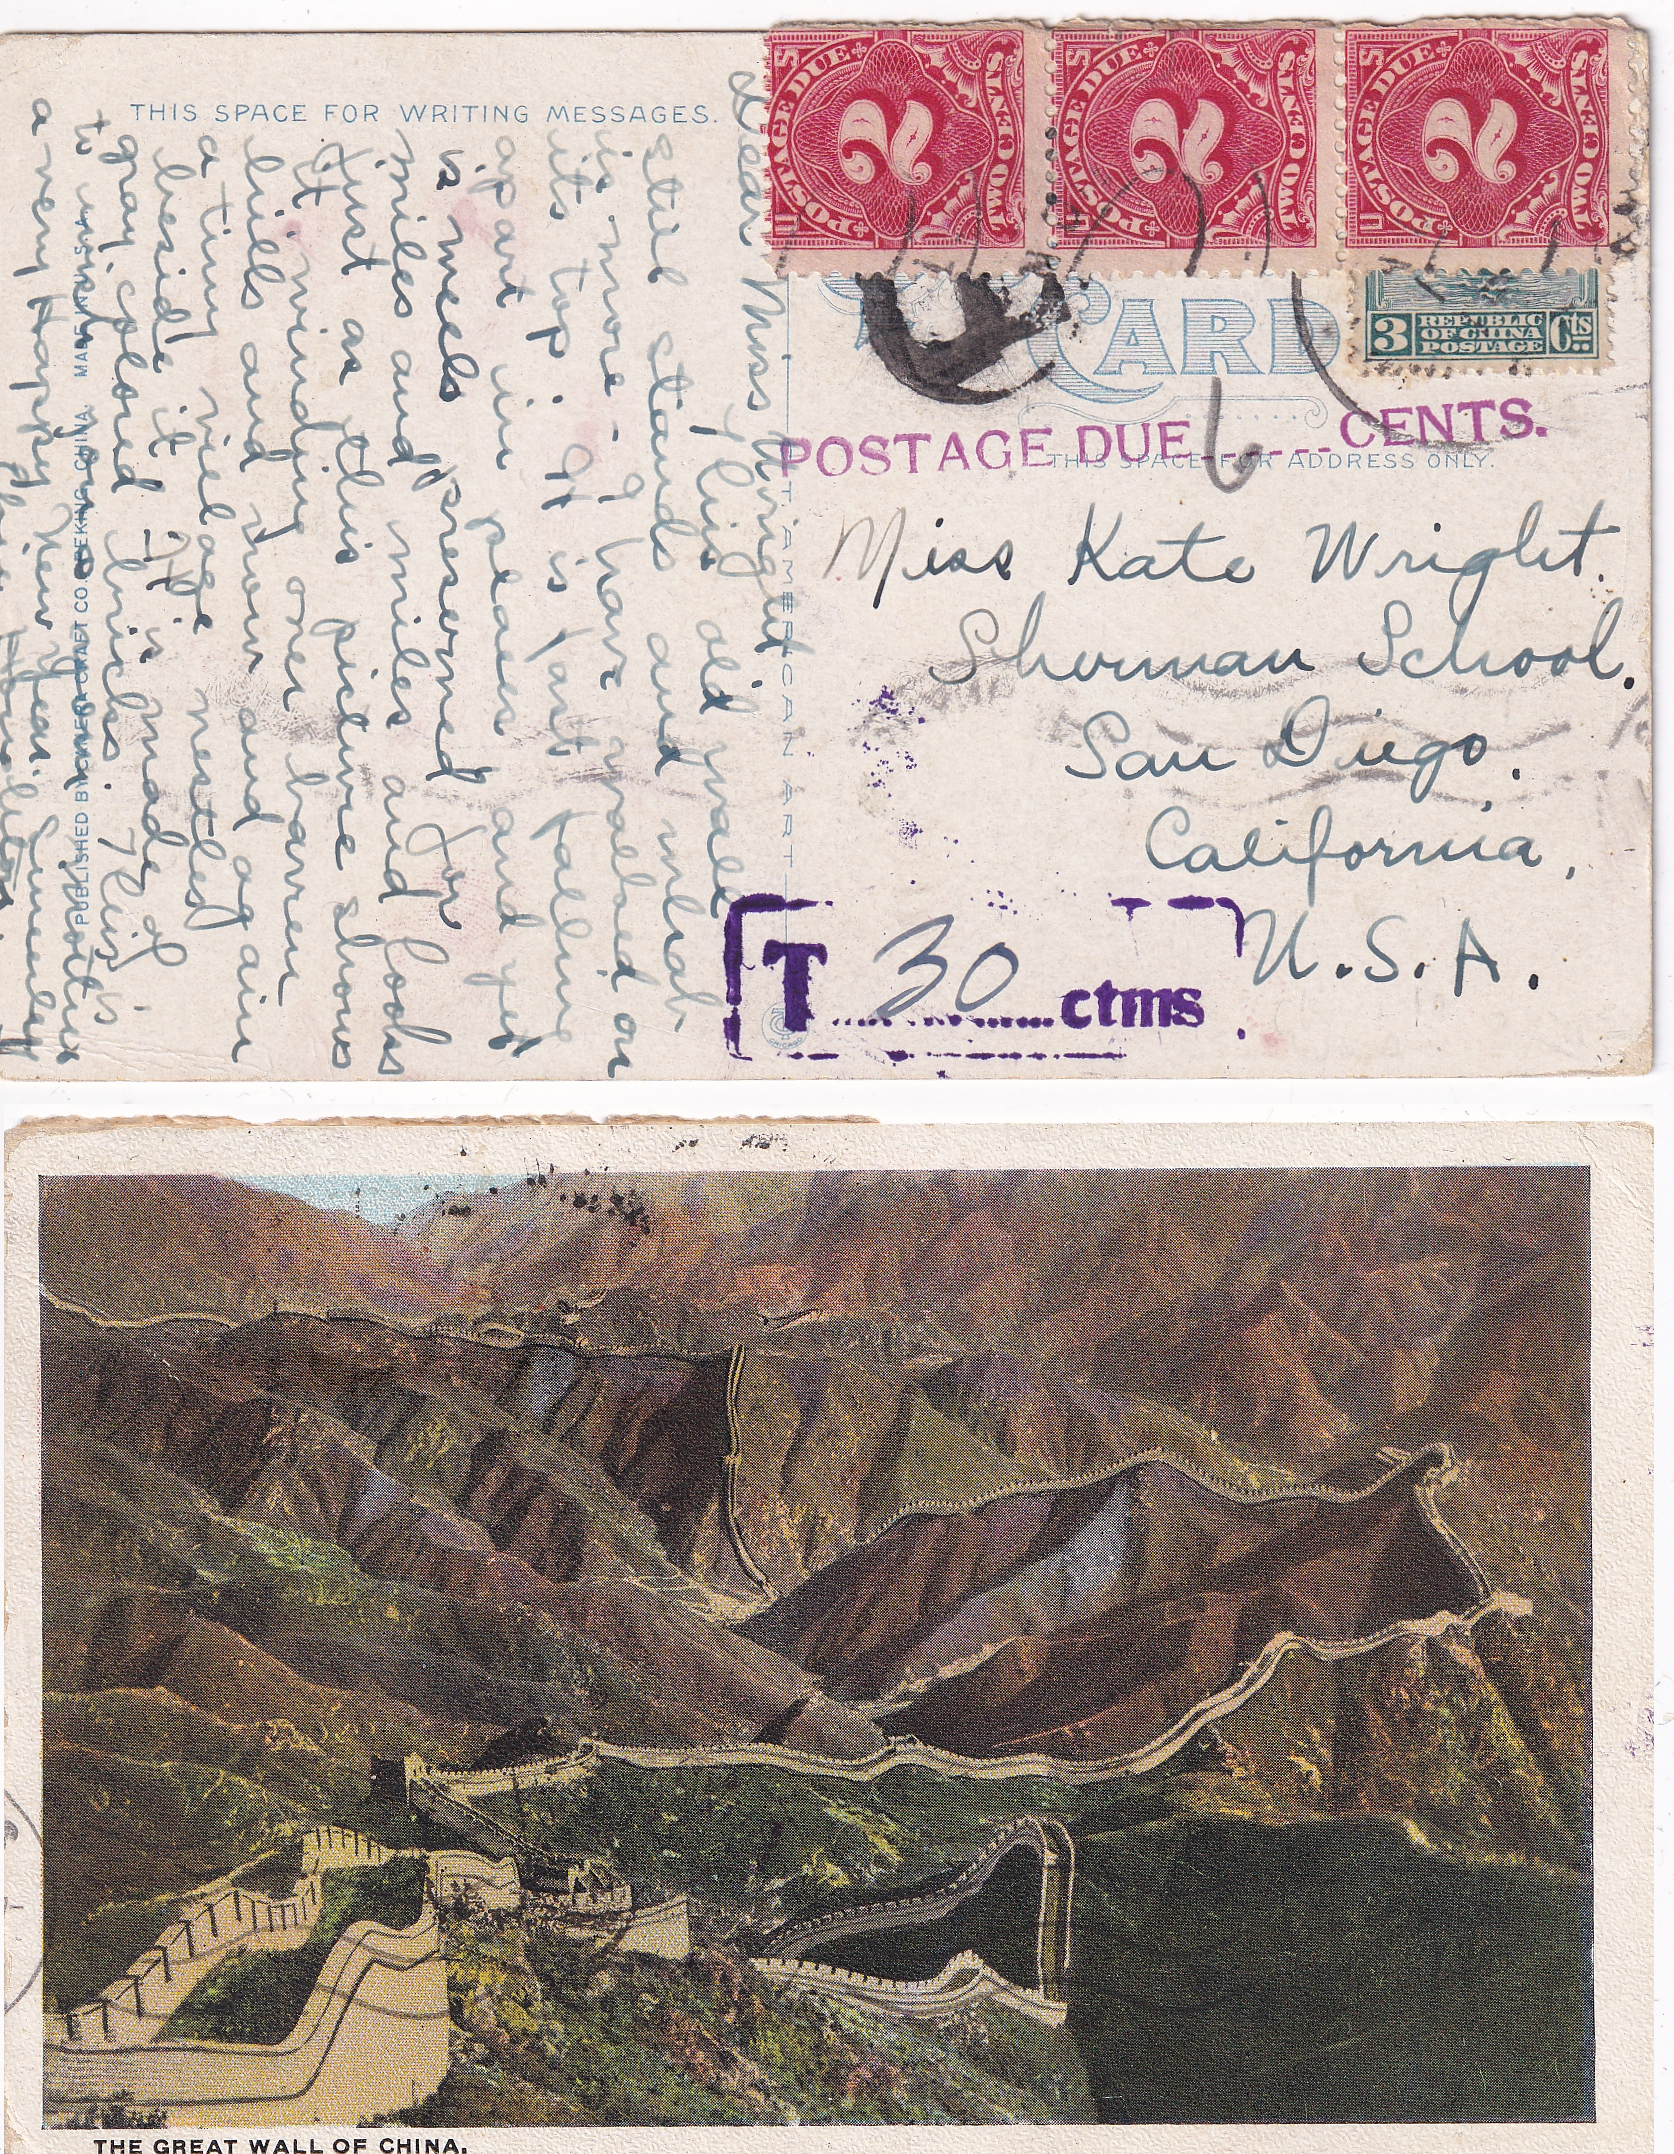 THIS SPACE FOR WRITING MESSAGES.
Dear Miss Wright
This old wall
still stands and what
is more - I have walked on
its top. It is fast falling
apart in places and yet
is well preserved for
miles and miles and looks
just as this picture shows
it winding over barren
hills and now and again
a tiny village nestled
beside it - It is made of
gray colored bricks. This is
to wish mother
a very Happy New Year. Sincerely
Hamilton
MADE IN U.S.A.
CO. PEKING, CHINA.
PUBLISHED BY CAMERA CRAFT
C.T. AMERICAN ART
CHICAGO
U S
POSTAGE DUE
2
TWO CENTS
U S
POSTAGE DUE
2
TWO CENTS
U S
POSTAGE DUE
2
TWO CENTS
CARD
3 REPUBLIC OF CHINA POSTAGE Cts
POSTAGE DUE 6 CENTS.
THIS SPACE FOR ADDRESS ONLY.
Miss Kate Wright.
Sherman School.
San Diego,
California,
U.S.A.
T 30 ctms
THE GREAT WALL OF CHINA.